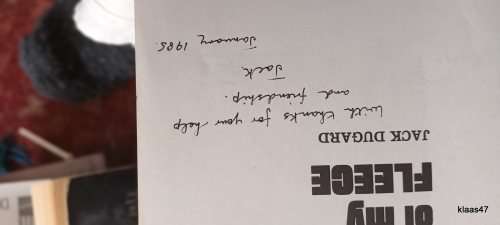 of my
FLEECE
JACK DUGARD
With thanks for your help
and friendship.
Jack
January 1985.
klaas47